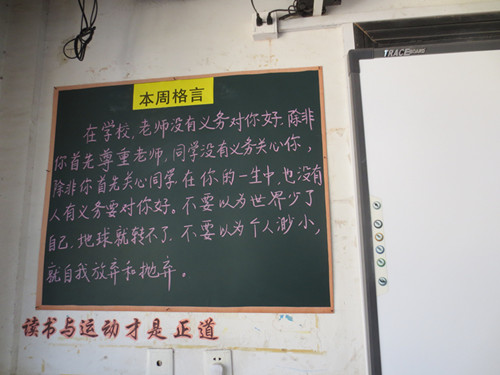 本周格言
在学校，老师没有义务对你好，除非
你首先尊重老师，同学没有义务关心你，
除非你首先关心同学，在你的一生中，也没有
人有义务要对你好。不要以为世界少了
自己，地球就转不了，不要以为个人渺小，
就自我放弃和抛弃。
读书与运动才是正道
TRACE